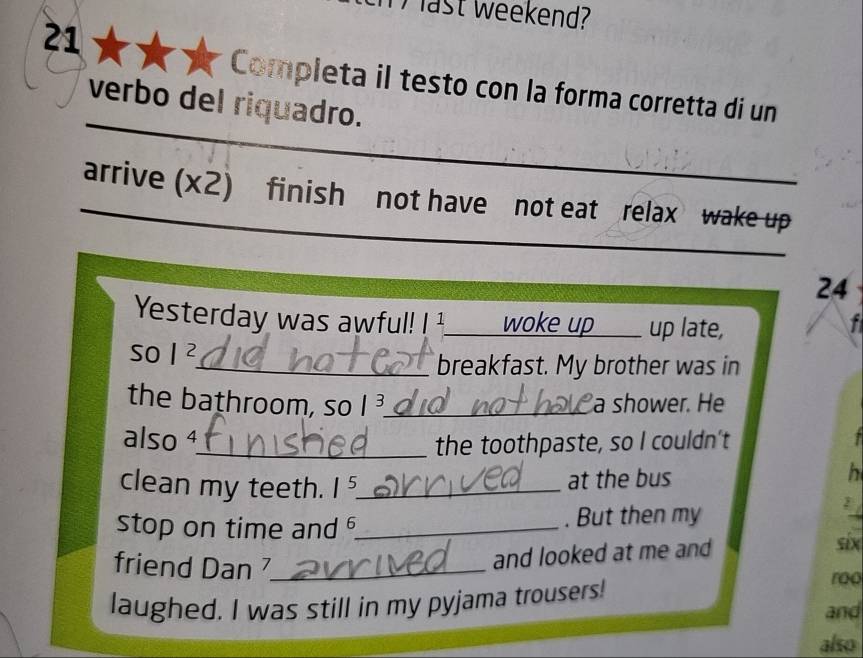 last weekend?
21 ★★★ Completa il testo con la forma corretta di un
verbo del riquadro.
arrive (x2) finish not have not eat relax wake up
Yesterday was awful! I ¹ woke up up late,
so I ² did not eat breakfast. My brother was in
the bathroom, so I ³ did not have a shower. He
also ⁴ finished the toothpaste, so I couldn't
clean my teeth. I ⁵ arrived at the bus
stop on time and ⁶____________. But then my
friend Dan ⁷ arrived and looked at me and
laughed. I was still in my pyjama trousers!
24
six
roo
and
also